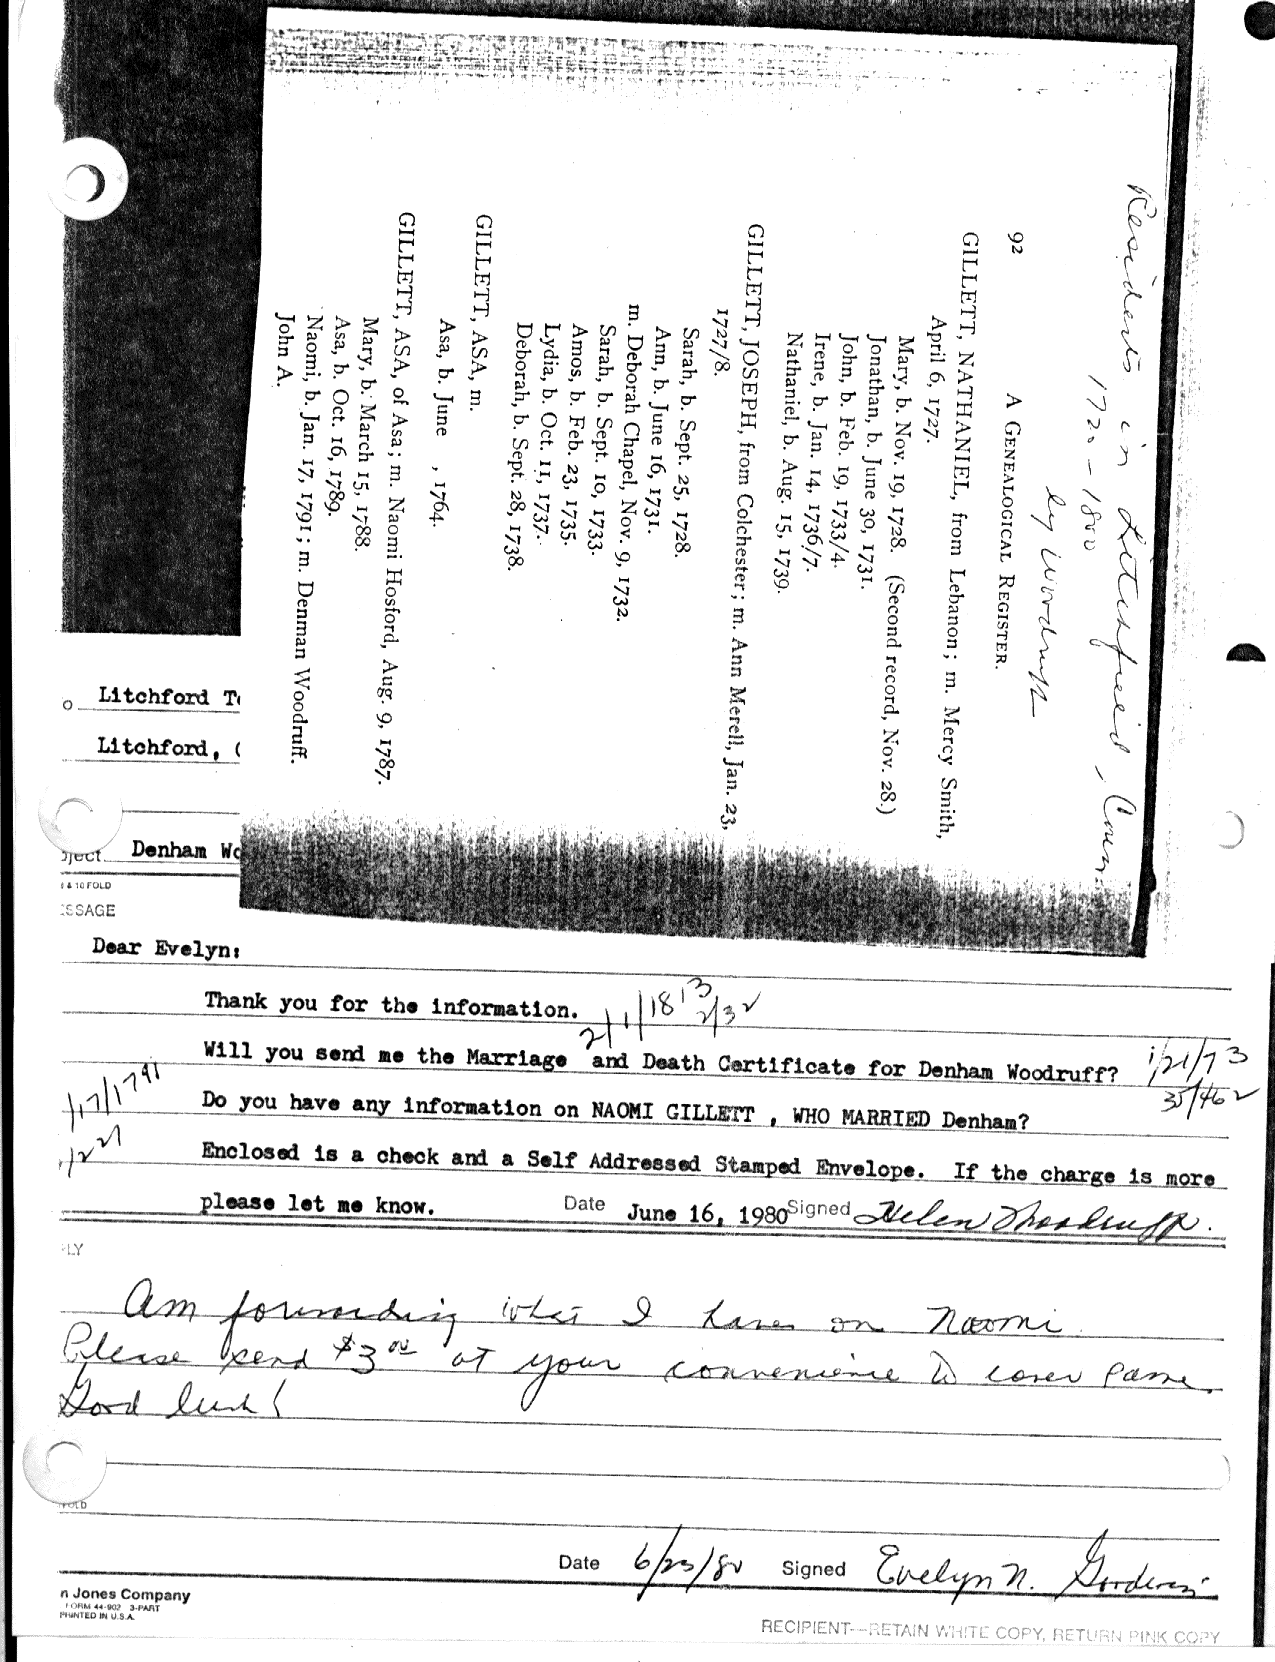 Residents in Litchfield, Conn.
1720-1800
by Woodruff
92 A GENEALOGICAL REGISTER.
GILLETT, NATHANIEL, from Lebanon; m. Mercy Smith,
April 6, 1727.
Mary, b. Nov. 19, 1728. (Second record, Nov. 28.)
Jonathan, b. June 30, 1731.
John, b. Feb. 19, 1733/4.
Irene, b. Jan. 14, 1736/7.
Nathaniel, b. Aug. 15, 1739.
GILLETT, JOSEPH, from Colchester; m. Ann Merell, Jan. 23,
1727/8.
Sarah, b. Sept. 25, 1728.
Ann, b. June 16, 1731.
m. Deborah Chapel, Nov. 9, 1732.
Sarah, b. Sept. 10, 1733.
Amos, b. Feb. 23, 1735.
Lydia, b. Oct. 11, 1737.
Deborah, b. Sept. 28, 1738.
GILLETT, ASA, m.
Asa, b. June , 1764.
GILLETT, ASA, of Asa; m. Naomi Hosford, Aug. 9, 1787.
Mary, b. March 15, 1788.
Asa, b. Oct. 16, 1789.
Naomi, b. Jan. 17, 1791; m. Denman Woodruff.
John A.
o Litchford T
Litchford, (
bject Denham Wo
& 10 FOLD
ESSAGE
Dear Evelyn:
Thank you for the information.
2/1/1813
2/32
Will you send me the Marriage and Death Certificate for Denham Woodruff?
1/21/73
35/462
/17/1791
Do you have any information on NAOMI GILLETT , WHO MARRIED Denham?
/227
Enclosed is a check and a Self Addressed Stamped Envelope. If the charge is more
please let me know. Date June 16, 1980 Signed Helen Woodruff
PLY
Am forwarding what I have on Naomi
Please send $3 00 at your convenience to cover same.
Good luck!
FOLD
Date 6/23/80 Signed Evelyn N.
n Jones Company
FORM 44-902 3-PART
PRINTED IN U.S.A.
RECIPIENT—RETAIN WHITE COPY, RETURN PINK COPY